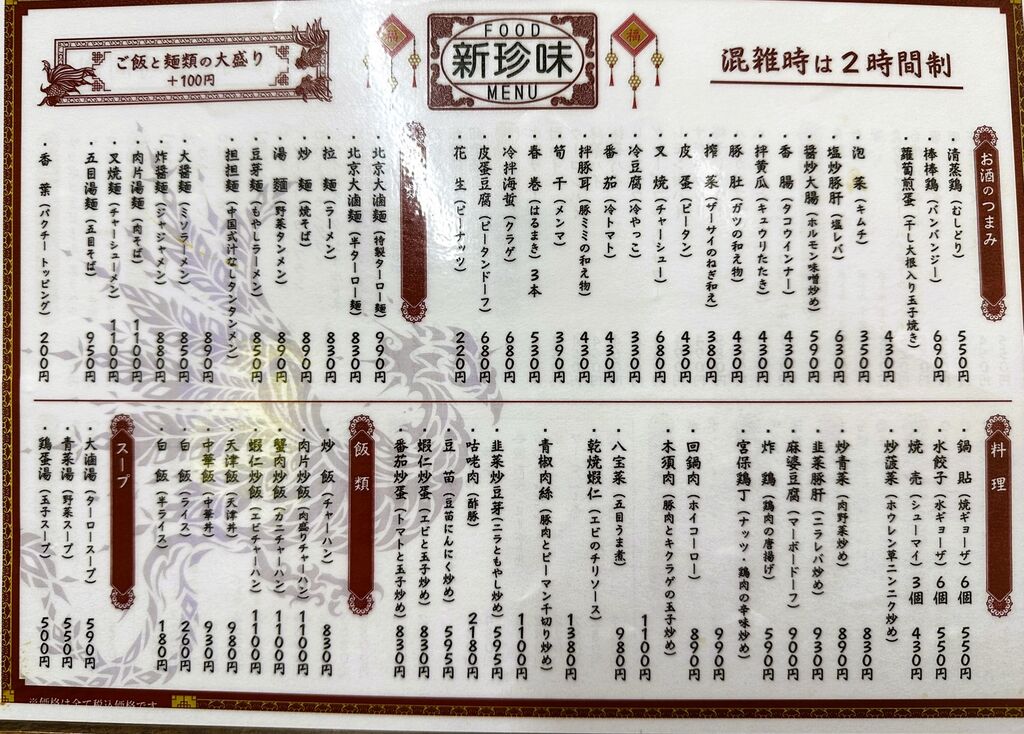 ご飯と麺類の大盛り
+100円
FOOD
新珍味
MENU
混雑時は2時間制
お酒のつまみ
・清蒸鶏(むしどり) 550円
・棒棒鶏(バンバンジー) 690円
・蘿蔔煎蛋(干し大根入り玉子焼き) 430円
・泡菜(キムチ) 350円
・塩炒豚肝(塩レバ) 630円
・醤炒大腸(ホルモン味噌炒め) 590円
・香腸(タコウインナー) 430円
・拌黄瓜(キュウリたたき) 430円
・豚肚(ガツの和え物) 430円
・搾菜(ザーサイのねぎ和え) 380円
・皮蛋(ピータン) 430円
・叉焼(チャーシュー) 680円
・冷豆腐(冷やっこ) 330円
・番茄(冷トマト) 430円
・拌豚耳(豚ミミの和え物) 430円
・筍干(メンマ) 390円
・春巻(はるまき)3本 530円
・冷拌海蜇(クラゲ) 680円
・皮蛋豆腐(ピータンドーフ) 680円
・花生(ピーナッツ) 220円
・北京大滷麺(特製ターロー麺) 990円
・北京大滷麺(半ターロー麺) 830円
・拉麺(ラーメン) 830円
・炒麺(焼そば) 890円
・湯麺(野菜タンメン) 890円
・豆芽麺(もやしラーメン) 850円
・担担麺(中国式汁なしタンタンメン) 890円
・大醤麺(ミソラーメン) 850円
・炸醤麺(ジャジャメン) 850円
・肉片湯麺(肉そば) 1100円
・叉焼麺(チャーシューメン) 1100円
・五目湯麺(五目そば) 950円
・香菜(パクチートッピング) 200円
料理
・鍋貼(焼ギョーザ)6個 550円
・水餃子(水ギョーザ)6個 550円
・焼売(シューマイ)3個 430円
・炒菠菜(ホウレン草ニンニク炒め) 830円
・炒青菜(肉野菜炒め) 890円
・韮菜豚肝(ニラレバ炒め) 930円
・麻婆豆腐(マーボードーフ) 900円
・炸鶏(鶏肉の唐揚げ) 590円
・宮保鶏丁(ナッツ・鶏肉の辛味炒め) 990円
・回鍋肉(ホイコーロー) 890円
・木須肉(豚肉とキクラゲの玉子炒め) 1100円
・八宝菜(五目うま煮) 980円
・乾焼蝦仁(エビのチリソース) 1380円
・青椒肉絲(豚肉とピーマン千切り炒め) 1100円
・韮菜炒豆芽(ニラともやし炒め) 595円
・咕咾肉(酢豚) 2180円
・豆苗(豆苗にんにく炒め) 595円
・蝦仁炒蛋(エビと玉子炒め) 830円
・番茄炒蛋(トマトと玉子炒め) 830円
飯類
・炒飯(チャーハン) 830円
・肉片炒飯(肉盛りチャーハン) 1100円
・蟹肉炒飯(カニチャーハン) 1100円
・蝦仁炒飯(エビチャーハン) 1100円
・天津飯(天津丼) 980円
・中華飯(中華丼) 930円
・白飯(ライス) 260円
・白飯(半ライス) 180円
スープ
・大滷湯(ターロースープ) 590円
・青菜湯(野菜スープ) 550円
・鶏蛋湯(玉子スープ) 500円
※価格は全て税込価格です